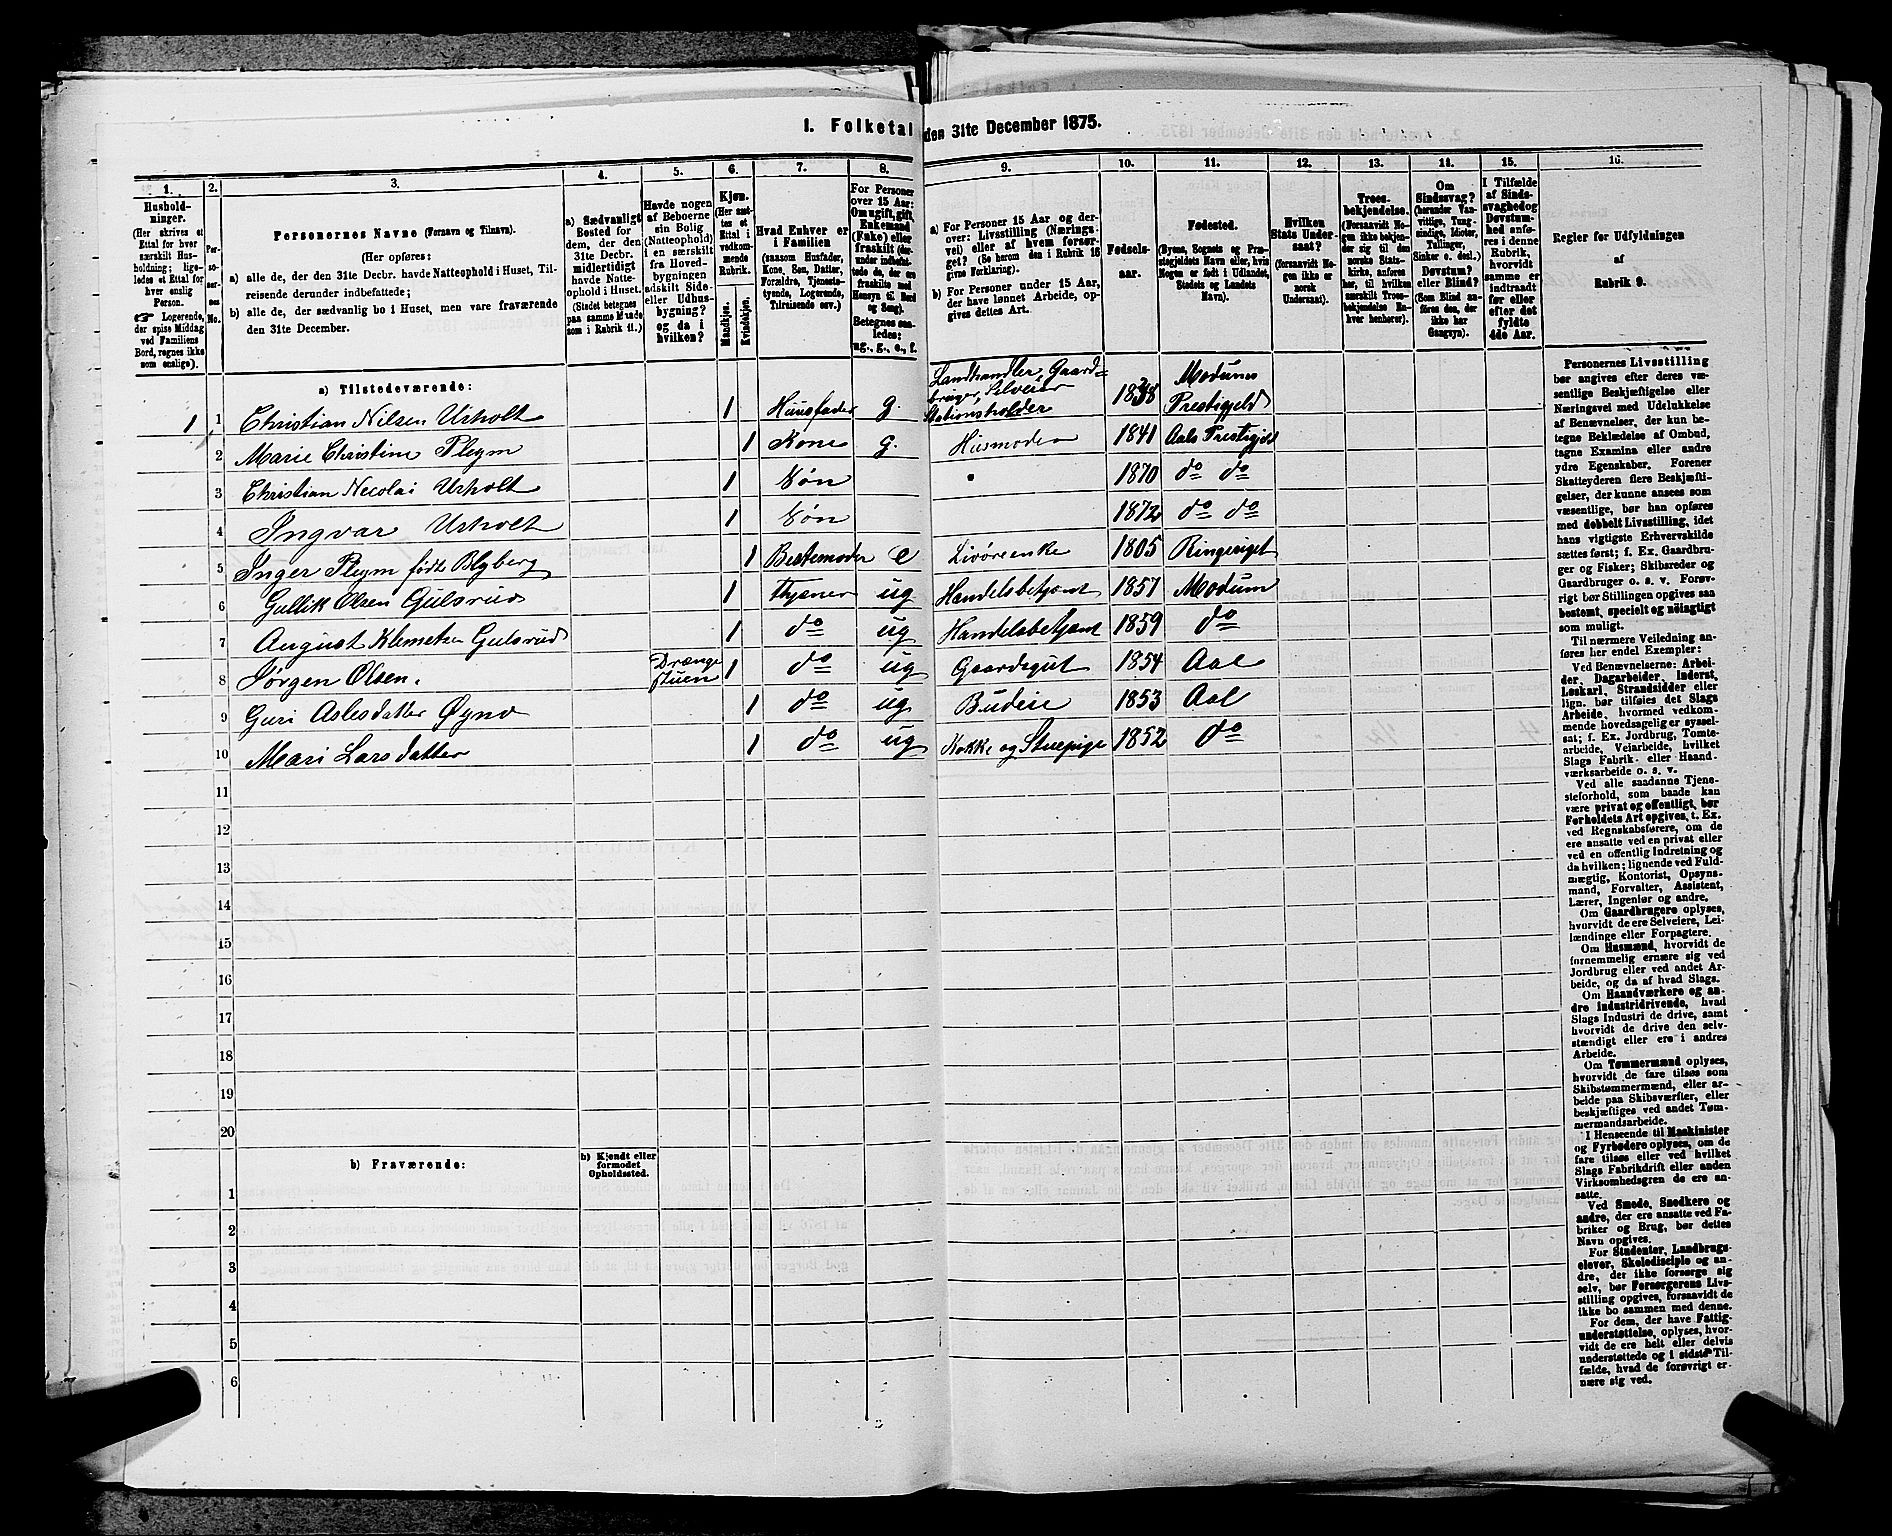 1. Folketal den 31te December 1875.
1. Husholdninger. (Her skrives et Ettal for hver særskilt Husholdning; ligeledes et Ettal for hver enslig Person. ☞ Logerende, der spise Middag ved Familiens Bord, regnes ikke som enslige).
2. Personernes No.
3. Personernes Navne (Fornavn og Tilnavn).
(Her opføres:
a) alle de, der den 31te Decbr. havde Natteophold i Huset, Tilreisende derunder indbefattede;
b) alle de, der sædvanlig bo i Huset, men vare fraværende den 31te December.
4. a) Sædvanligt Bosted for dem, der den 31te Decbr. midlertidigt havde Natteophold i Huset. (Stedet betegnes paa samme Maade som i Rubrik 11.)
5. Havde nogen af Beboerne sin Bolig (Natteophold) i en særskilt fra Hovedbygningen adskilt Side- eller Udhusbygning? og da i hvilken?
6. Kjøn. (Her sættes et Ettal i vedkommende Rubrik. Mandkjøn. Kvindekjøn.
7. Hvad Enhver er i Familien (saasom Husfader, Kone, Søn, Datter, Forældre, Tjenestetyende, Logerende, Tilreisende osv.)
8. For Personer over 15 Aar: Om ugift, gift, Enkemand (Enke) eller fraskilt (derunder indbefattede de, der ere fraskilte med Hensyn til Bord og Seng). Betegnes saaledes: ug., g., e., f.
9. a) For Personer 15 Aar og derover: Livsstilling (Næringsvei) eller af hvem forsørget? (Se herom den i Rubrik 16 givne Forklaring).
b) For Personer under 15 Aar, der have lønnet Arbeide, opgives dettes Art.
10. Fødselsaar.
11. Fødested. (Byens, Sognets og Præstegjeldets Navn eller, hvis Nogen er født i Udlandet, Stedets og Landets Navn).
12. Hvilken Stats Undersaat? (forsaavidt Nogen ikke er norsk Undersaat).
13. Troesbekjendelse. (Forsaavidt Nogen ikke bekjender sig til den norske Statskirke, anføres her, til hvilket særskilt Troesbekjendelse Enhver henhører).
14. Om Sindssvag? (herunder Vanvittige, Tungsindige, Idioter, Tullinger, Sinker o. desl.) Døvstum? eller Blind? (Som Blind anføres den, der ikke har Gangsyn).
15. I Tilfælde af Sindssvaghed og Døvstumhed anføres i denne Rubrik, hvorvidt samme er indtraadt før eller efter det fyldte 4de Aar.
16. Regler for Udfyldningen af Rubrik 9.
a) Tilstedeværende:
1 1 Christian Nilsen Urholt 1 Huusfader g. Landhandler, Gaardbruger, Selveier Stationsholder 1838 Modums Prestigjeld
2 Marie Christine Pleym 1 Kone g. Husmoder 1841 Aals Prestigjel
3 Christian Necolai Urholt 1 Søn 1870 do do
4 Ingvar Urholt 1 Søn 1872 do do
5 Inger Pleym født Blyberg 1 Bestemoder e Livøreenke 1805 Ringeriget
6 Gullik Olsen Gulsrud 1 Thjener ug Handelsbetjent 1857 Modum
7 August Klemetsen Gulsrud 1 do ug Handelsbetjent 1859 do
8 Jørgen Olsen. Drængestuen 1 do ug Gaardsgut 1854 Aal
9 Guri Aslesdatter Øynd 1 do ug Budeie 1853 Aal
10 Mari Larsdatter 1 do ug Kokke og Stuepige 1852 do
11
12
13
14
15
16
17
18
19
20
b) Fraværende: b) Kjendt eller formodet Opholdssted.
1
2
3
4
5
6
Personernes Livsstilling
bør angives efter deres væ-
sentlige Beskjæftigelse eller
Næringsvei med Udelukkelse
af Benævnelser, der kun be-
tegne Beklædelse af Ombud,
tagne Examina eller andre
ydre Egenskaber. Forener
Skatteyderen flere Beskjæfti-
gelser, der kunne ansees som
væsentlige, bør han opføres
med dobbelt Livsstilling, idet
hans vigtigste Erhvervskilde
sættes først; f. Ex. Gaardbru-
ger og Fisker; Skibsreder og
Gaardbruger o. s. v. Forøv-
rigt bør Stillingen opgives saa
bestemt, specielt og nøiagtigt
som muligt.
Til nærmere Veiledning an-
føres her endel Exempler:
Ved Benævnelserne: Arbei-
der, Dagarbeider, Inderst,
Løskarl, Strandsidder eller
lign. bør tilføies det Slags
Arbeide, hvormed vedkom-
mende hovedsagelig er syssel-
sat; f. Ex. Jordbrug, Tomte-
arbeide, Veiarbeide, hvilket
Slags Fabrik- eller Haand-
værksarbeide o. s. v.
Ved alle saadanne Tjene-
steforhold, som baade kan
være privat og offentligt, bør
Forholdets Art opgives, t. Ex.
ved Regnskabsførere, om de
ere ansatte ved en privat eller
ved en offentlig Indretning og
da hvilken; lignende ved Fuld-
mægtig, Kontorist, Opsyns-
mand, Forvalter, Assistent,
Lærer, Ingeniør og andre.
Om Gaardbrugere oplyses,
hvorvidt de ere Selveiere, Lei-
lændinge eller Forpagtere.
Om Husmænd, hvorvidt de
fornemmelig ernære sig ved
Jordbrug eller ved andet Ar-
beide, og da af hvad Slags.
Om Haandværkere og an-
dre industridrivende, hvad
Slags Industri de drive, samt
hvorvidt de drive den selv-
stændigt eller ere i andres
Arbeide.
Om Tømmermænd oplyses,
hvorvidt de fare tilsøs som
Skibstømmermænd, eller ar-
beide paa Skibsværfter, eller
beskjæftiges ved andet Tøm-
mermandsarbeide.
I Henseende til Maskinister
og Fyrbødere oplyses, om de
fare tilsøs eller ved hvilket
Slags Fabrikdrift eller anden
Virksomhedsgren de ere an-
satte.
Ved Smede, Snedkere og
andre, der ere ansatte ved Fa-
briker og Brug, bør dettes
Navn opgives.
For Studenter, Landbrugs-
elever, Skoledisciple og an-
dre, der ikke forsørge sig
selv, bør Forsørgerens Livs-
stilling opgives, forsaavidt de
ikke bo sammen med denne.
For dem, der have Fattig-
understøttelse, oplyses, hvor-
vidt de ere helt eller delvis
understøttede og i sidste Til-
fælde, hvad de forøvrigt er-
nære sig ved.